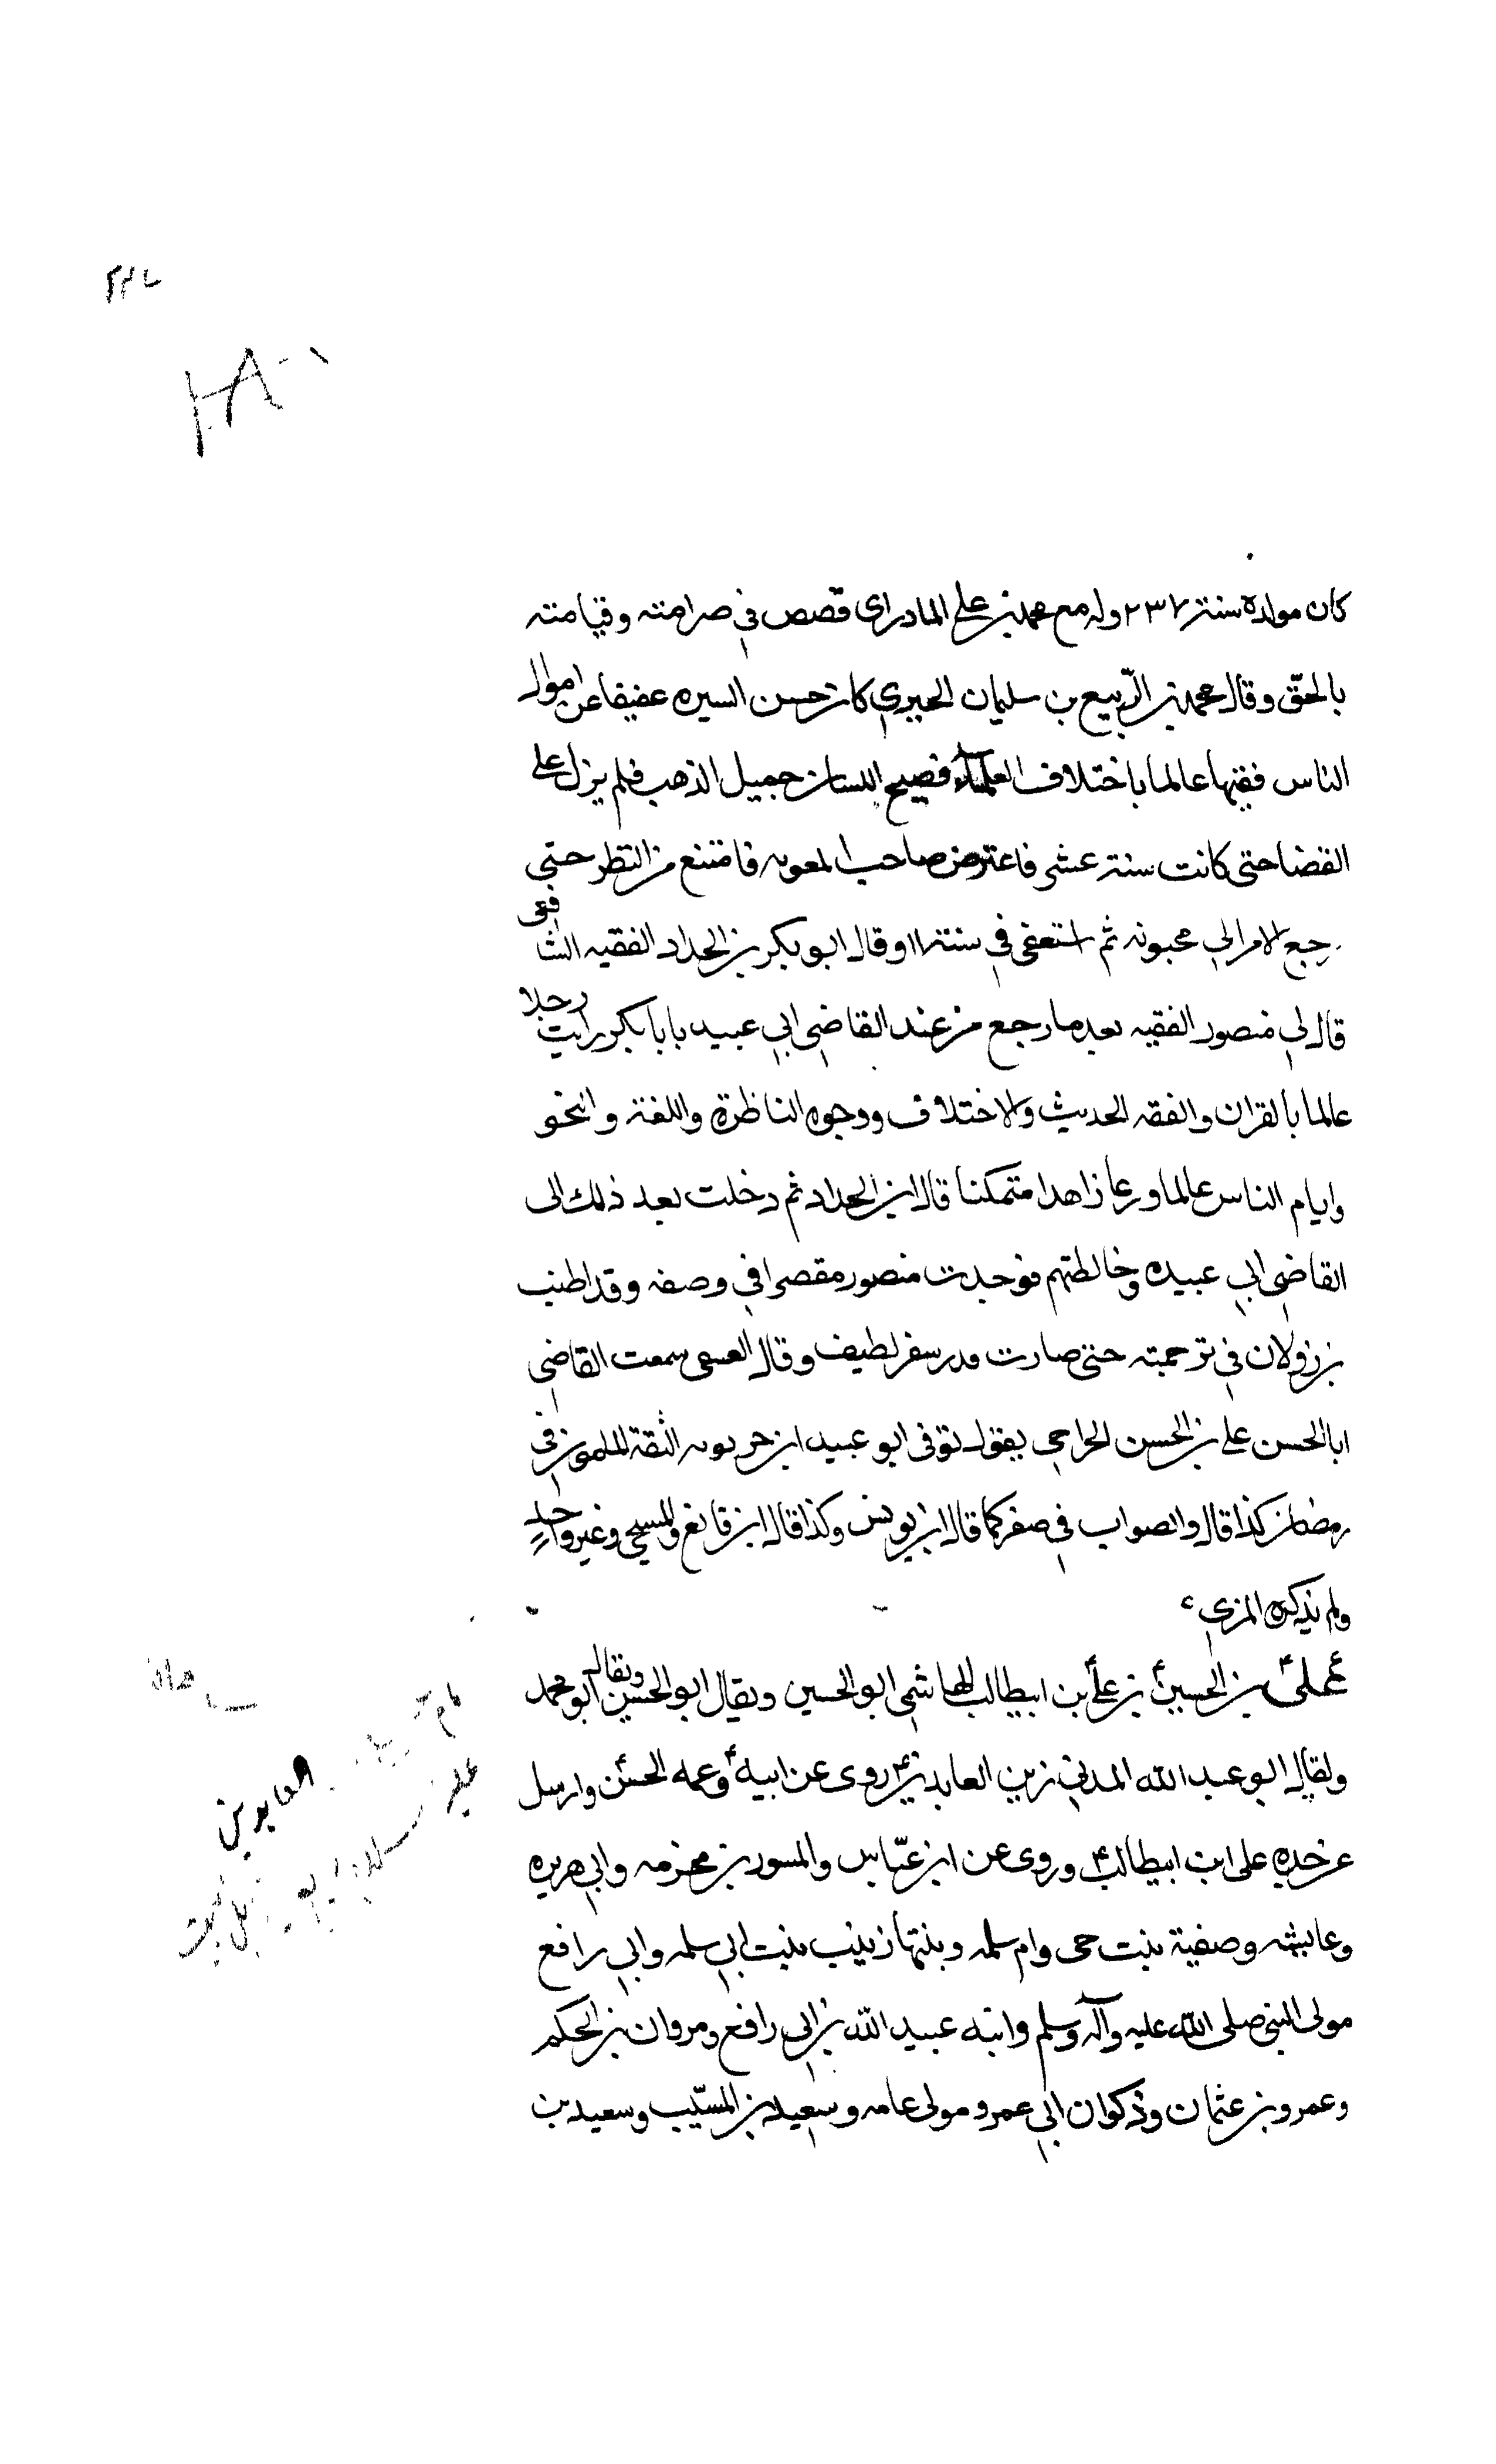 كان مولده سنة ٢٣٧ وله مع محمد بن علي المادراى قصص في صرامته وقيامته
بالحقّ وقال محمد بن الربيع بن سليمان الجيزي كان حسن السيره عفيفا عن اموال
الناس فقيها عالما باختلاف العلماء فصيح اللسان جميل الذهب فلم يزل على
القضا حتى كانت سنة عشر فاعترض صاحب المعونه فامتنع من النظر حتى
رجع الامر الى محبونه ثم استعفى في سنة ١١ وقال ابو بكر بن الحداد الفقيه الشافعى
قال لي منصور الفقيه بعد ما رجع من عند القاضي ابي عبيد يابا بكر رايت رجلا
عالما بالقران والفقه الحديث والاختلاف ووجوه الناظرة واللغة والنحو
وايام الناس عالما ورعا زاهدا متمكنا قال ابن الحداد ثم دخلت بعد ذلك الى
القاضي ابي عبيده وخالطتهم فوجدت منصور مقصرا في وصفه وقد اطنب
بن زولان في ترجمته حتى صارت قدر سفر لطيف وقال سمعت القاضي
ابا الحسن على بن الحسن الجراحى يقول توفى ابو عبيد ابن حربويه الثقة المامون في
رمضان كذا قال والصواب في صفر كما قال ابن يونس وكذا قال ابن قانع والمسبحي وغير واحد
ولم يذكره المزي
على بن الحسين بن علي بن ابيطالب الهاشمى ابو الحسين ويقال ابو الحسن ويقال ابو محمد
ويقال ابو عبد الله المدني زين العابدين روى عن ابيه وعمه الحسن وارسل
عن جده على ابن ابيطالب وروى عن ابن عبّاس والمسور بن مخرمه وابي هريره
وعايشه وصفية بنت حى وام سلمه وبنتها زينب بنت ابي سلمه وابي رافع
مولى النبي صلى الله عليه وآله وسلم وابنه عبيد الله بن ابي رافع ومروان بن الحكم
وعمرو بن عثمان وذكوان ابي عمرو مولى عامه وسعيد بن المسيّب وسعيد بن
العابدين